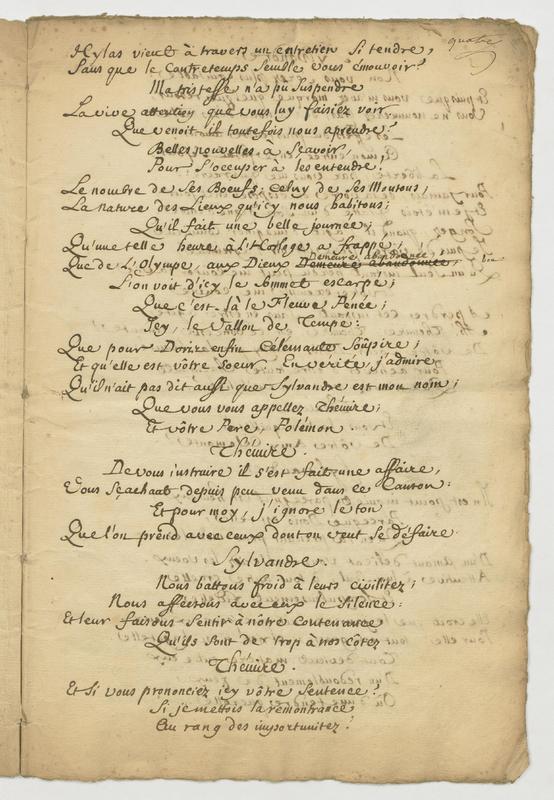 quatre
Hylas vient à travers un entretien si tendre,
Sans que le Contretemps semble vous émouvoir?
Ma tristesse n'a pû suspendre
La vive attention que vous luy faisiez voir
Que venoit-il toutefois nous aprendre?
Belles nouvelles à sçavoir,
Pour s'occuper à les entendre!
Le nombre de Ses Boeufs; Celuy de Ses Moutons;
La nature des Lieux qu'icy nous habitons;
Qu'il fait une belle journée;
Qu'une telle heure à L'Horloge a frappé;
Demeure
Que de L'Olympe, aux Dieux Demeure abandonnée,
L'on voit d'icy le sommet escarpé;
Que c'est là le Fleuve Penée;
Icy, le Vallon de Tempé:
Que pour Doris enfin Celemante Soûpire;
Et qu'elle est vôtre Soeur. En vérité, j'admire
Qu'il n'ait pas dit aussi que Sylvandre est mon nom;
Que vous vous appellez Thémire;
Et vôtre Pere, Polémon.
Thémire.
De vous instruire il s'est fait une affaire,
Vous Sçachant depuis peu venu dans ce Canton:
Et pour moy, j'ignore le ton
Que l'on prend avec ceux dont on veut se défaire.
Sylvandre.
Nous battons froid à leurs civilitez;
Nous affectons avec eux le Silence:
Et leur faisons Sentir à nôtre Contenance
Qu'ils Sont de trop à nos côtez
Thémire.
Et Si vous prononciez icy vôtre Sentence?
Si je mettois la remontrance
Au rang des importunitez?